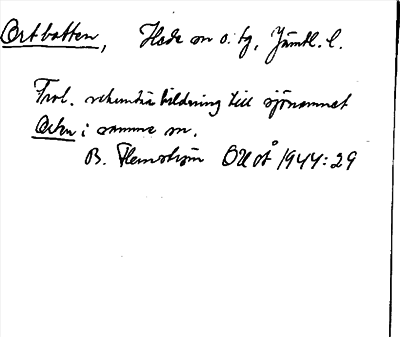 Ortbotten, Hede sn o. tg, Jämtl. l.
Trol. sekundär bildning till sjönamnet
i samma sn.
B. Flemström OUoÅ 1944:29